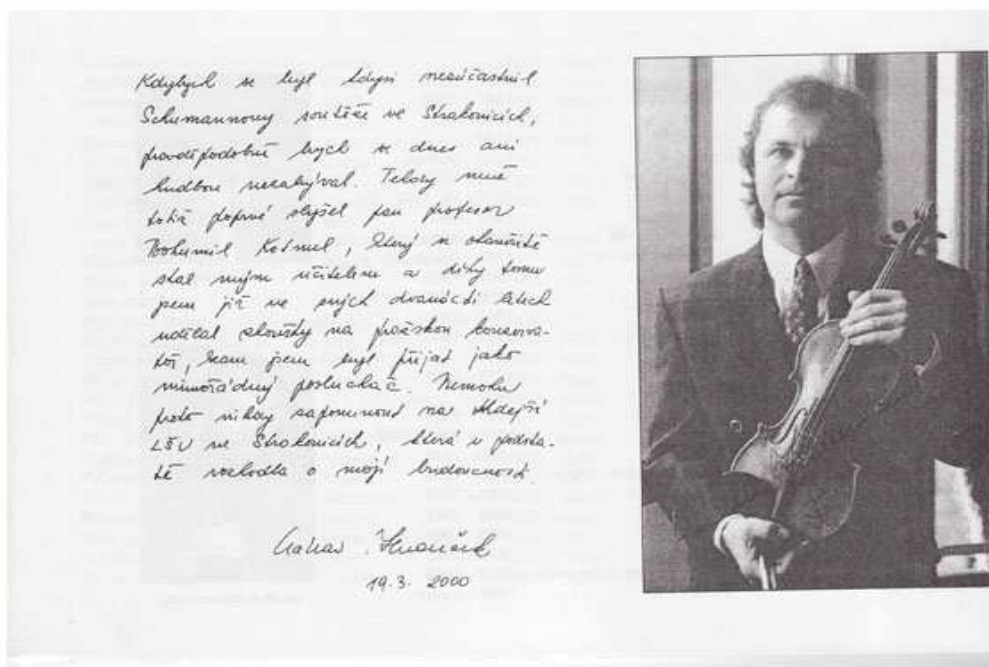 Kdybych se byl kdysi nezúčastnil
Schumannovy soutěže ve Strakonicích,
pravděpodobně bych se dnes ani
hudbou nezabýval. Tehdy mně
totiž poprvé slyšel pan profesor
Bohumil Kotmel, který se okamžitě
stal mým učitelem a díky tomu
jsem již ve svých dvanácti letech
udělal zkoušky na pražskou konzerva-
toř, kam jsem byl přijat jako
mimořádný posluchač. Nemohu
proto nikdy zapomenout na zdejší
LŠU ve Strakonicích, která v podsta-
tě rozhodla o mojí budoucnosti.
Hudeček
19.3. 2000